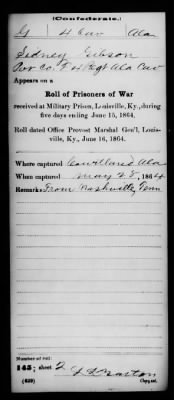 (Confederate.)
G | 4 Cav | Ala
Sidney Gibson
Pvt Co. F 4 Regt Ala Cav
Appears on a
Roll of Prisoners of War
received at Military Prison, Louisville, Ky., during
five days ending June 15, 1864.
Roll dated Office Provost Marshal Gen'l, Louis-
ville, Ky., June 16, 1864.
Where captured Courtland Ala
When captured May 28, 1864
Remarks: From Nashville, Tenn
Number of roll:
145; sheet 2
(639) Copyist.